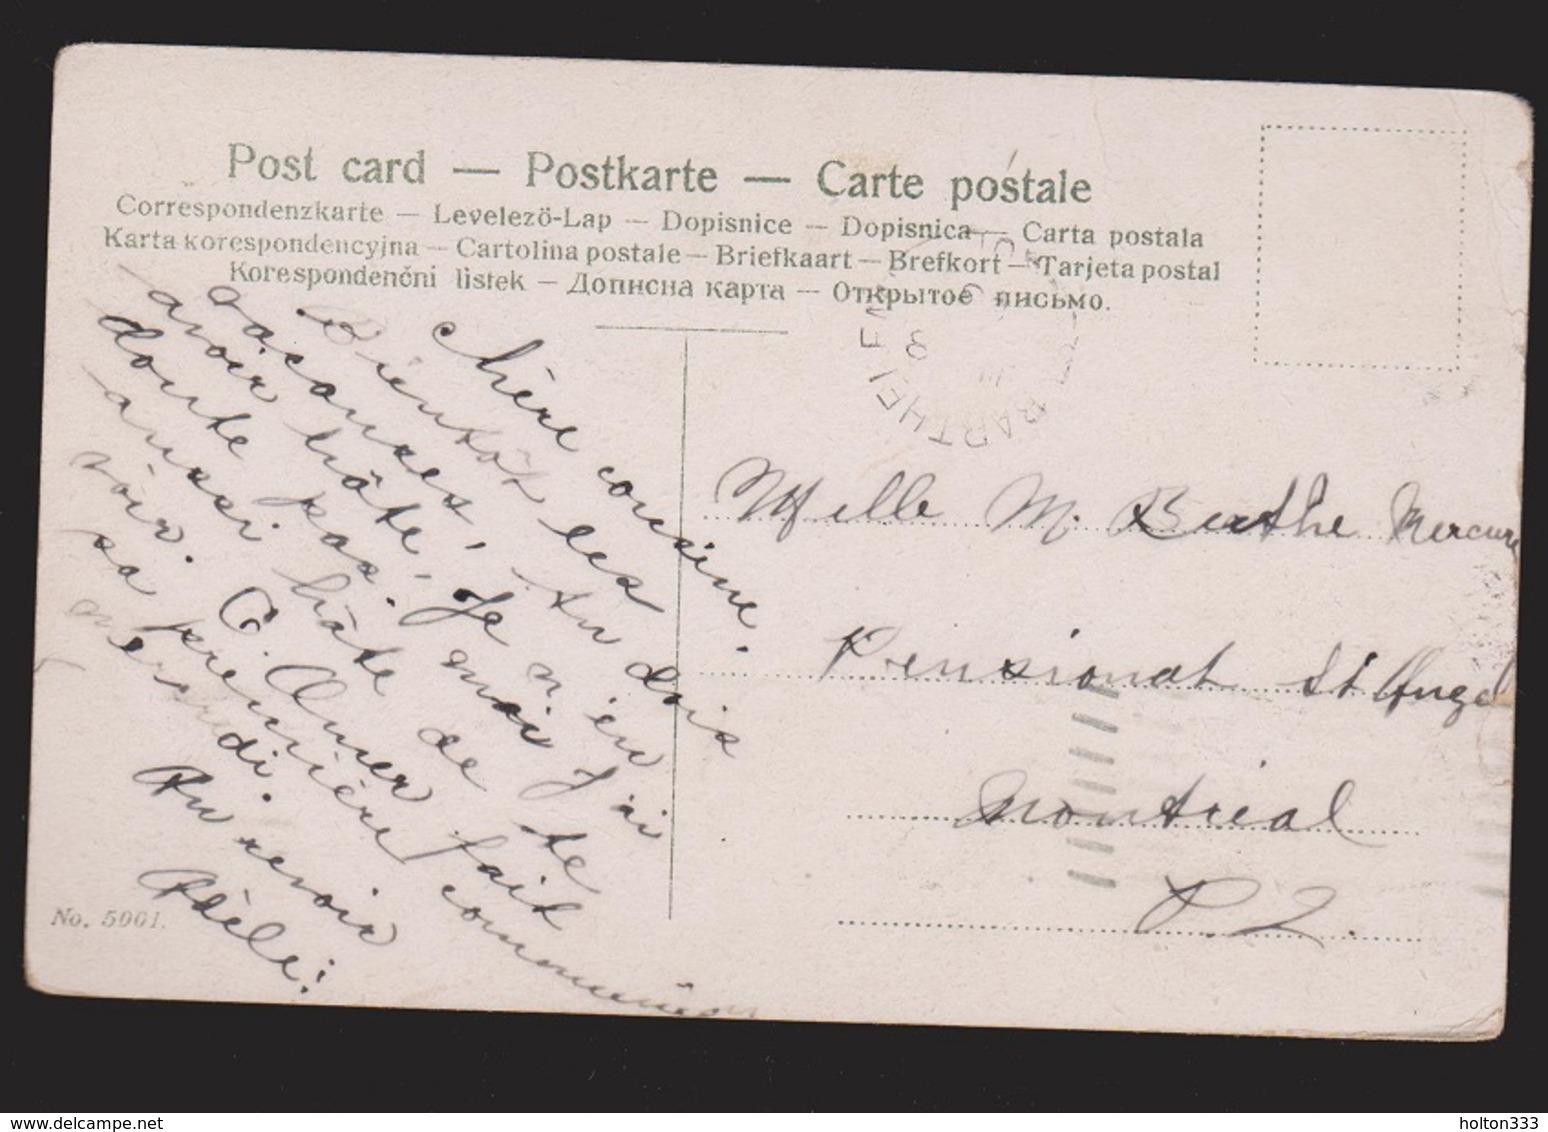 Post card — Postkarte — Carte postale
Correspondenzkarte — Levelező-Lap — Dopisnice — Dopisnica — Carta postala
Karta korespondencyjna — Cartolina postale — Briefkaart — Brefkort — Tarjeta postal
Korespondenční listek — Дописна карта — Открытое письмо.
Chère cousine.
Bientôt les
vacances, tu dois
avoir hâte, Je n'en
doute pas! moi J'ai
aussi hâte de te
voir. O. Omer fait
sa première communion
mercredi.
Au revoir
Adèle!
BARTHELE
Melle M. Berthe Mercure
Pensionat St Ange
Montréal
P. 2.
No. 5001.
holton333